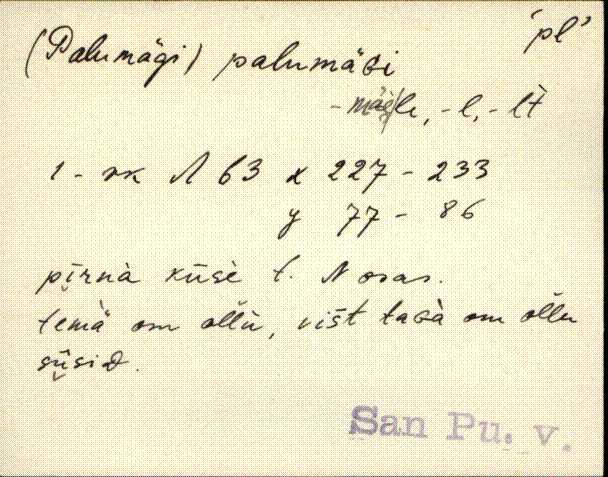 'pl'
(Palumägi) palumäGi
-mäg|le, -l, -lt̀
1-vk Λ 63 x 227 - 233
y 77 - 86
pīrnà küsè t. N osas.
temä om ollù, vist taGà om õllu
süsiD.
San Pu. v.